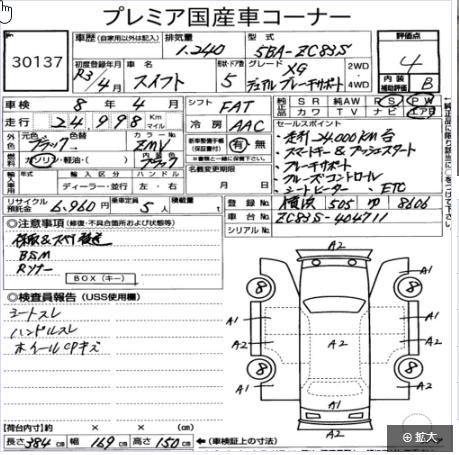 プレミア国産車コーナー
30137
車歴 (自家用以外は記入)
排気量 1.240
5BA-ZC83S
評価点 4
初度登録年月 R3/4月
車名 スイフト
形状・ドア数 5
グレード XG
デュアルブレーキサポート
2WD
4WD
内装補助評価 B
車検 8年 4月
シフト FAT
純正品 SR 純AW RS PW
カワ TV ナビ
走行 24,998 Km マイル
冷房 AAC
セールスポイント
・走行24,000KM台
・スマートキー&プッシュスタート
・ブレーキサポート
・クルーズコントロール
・シートヒーター、ETC
外装色 元色 ブラック 色替 カラーNo ZMV
燃料 ガソリン・軽油・( ) 内装色 ブラック
新車整備手帳(保証書付) 有・無
※書類と一緒に保管下さい。
輸入車用 ディーラー・並行 左・右
名義変更期限 月 日
リサイクル預託金 6,960円 乗車定員 5人 積載量 t
登録No 横浜 505 ゆ 8606
車台No ZC83S-404711
シリアルNo
◎注意事項 (修復・不具合箇所および状態等)
保取&スペア後送
BSM
Rソナー
BOX(キー)
◎検査員報告 (USS使用欄)
シートスレ
ハンドルスレ
ホイールCPキズ
A2
8 A1 A1 8
A1 A2 A1
A2 A2 A2
8 8
A1 A1
A2
【荷台内寸】 約 × × (cm)
長さ 384 cm 幅 169 cm 高さ 150 cm ←(車検証上の寸法)
拡大